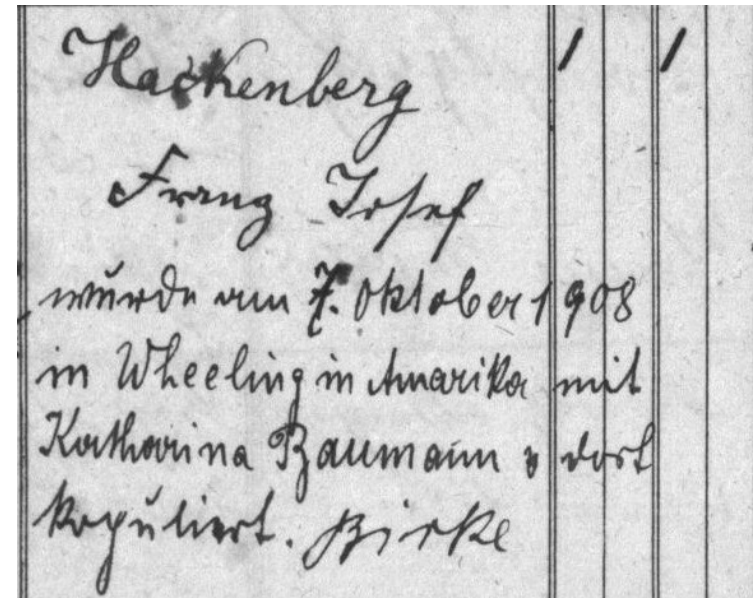 Hackenberg
Franz Josef
wurde am 7. Oktober 1908
in Wheeling in Amerika mit
Katharina Baumann v dort
kopuliert. Birke